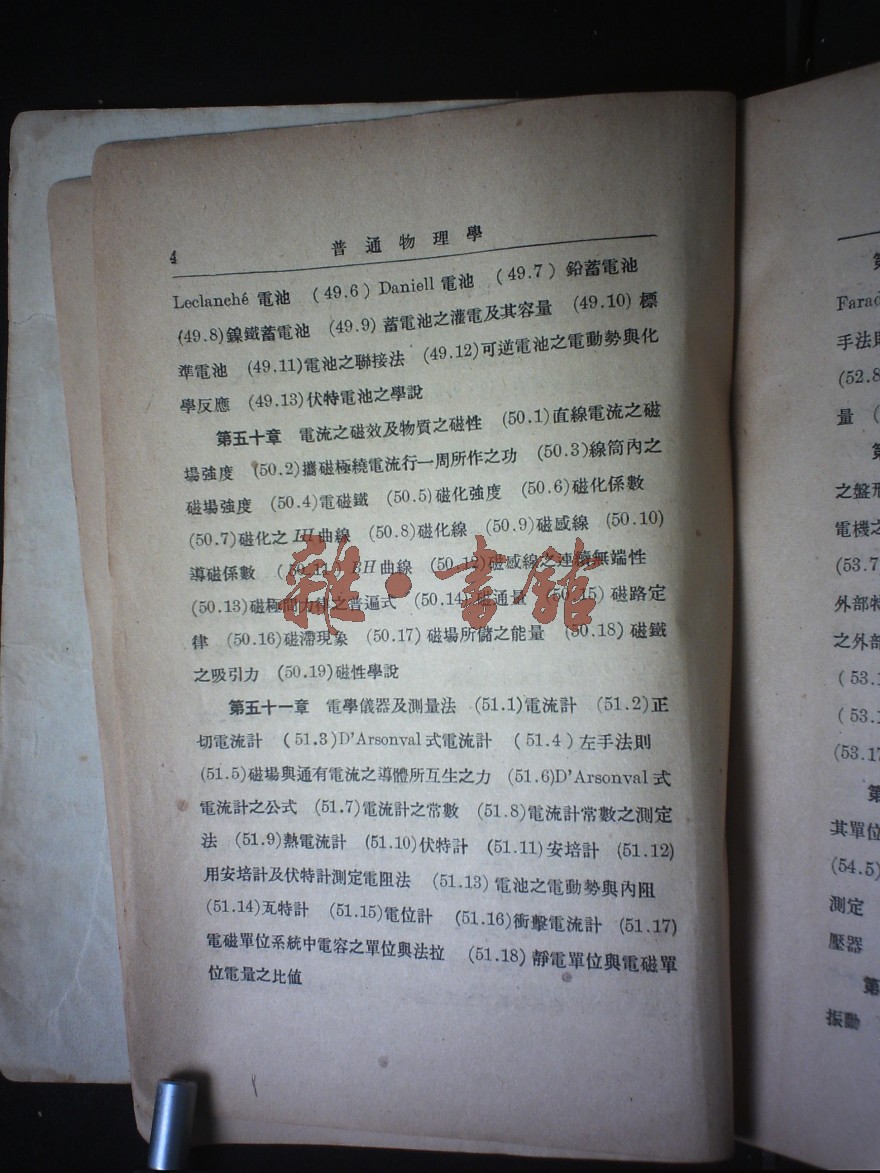 4 普通物理學
Leclanché 電池 (49.6) Daniell 電池 (49.7) 鉛蓄電池
(49.8)鎳鐵蓄電池 (49.9) 蓄電池之灌電及其容量 (49.10) 標
準電池 (49.11)電池之聯接法 (49.12)可逆電池之電動勢與化
學反應 (49.13)伏特電池之學說
第五十章 電流之磁效及物質之磁性 (50.1)直線電流之磁
場強度 (50.2)攜磁極繞電流行一周所作之功 (50.3)線筒內之
磁場強度 (50.4)電磁鐵 (50.5)磁化強度 (50.6)磁化係數
(50.7)磁化之 IH 曲線 (50.8)磁化線 (50.9)磁感線 (50.10)
導磁係數 (50.11) BH 曲線 (50.12)磁感線之連續無端性
(50.13)磁極間力律之普遍式 (50.14)磁通量 (50.15) 磁路定
律 (50.16)磁滯現象 (50.17) 磁場所儲之能量 (50.18) 磁鐵
之吸引力 (50.19)磁性學說
第五十一章 電學儀器及測量法 (51.1)電流計 (51.2)正
切電流計 (51.3)D'Arsonval 式電流計 (51.4) 左手法則
(51.5)磁場與通有電流之導體所互生之力 (51.6)D'Arsonval 式
電流計之公式 (51.7)電流計之常數 (51.8)電流計常數之測定
法 (51.9)熱電流計 (51.10)伏特計 (51.11)安培計 (51.12)
用安培計及伏特計測定電阻法 (51.13) 電池之電動勢與內阻
(51.14)瓦特計 (51.15)電位計 (51.16)衝擊電流計 (51.17)
電磁單位系統中電容之單位與法拉 (51.18) 靜電單位與電磁單
位電量之比值
雜·書館
第
Farad
手法則
(52.8
量 (
第
之盤形
電機之
(53.7
外部特
之外部
(53.1
(53.1
(53.17
第
其單位
(54.5)
測定
壓器
第
振動